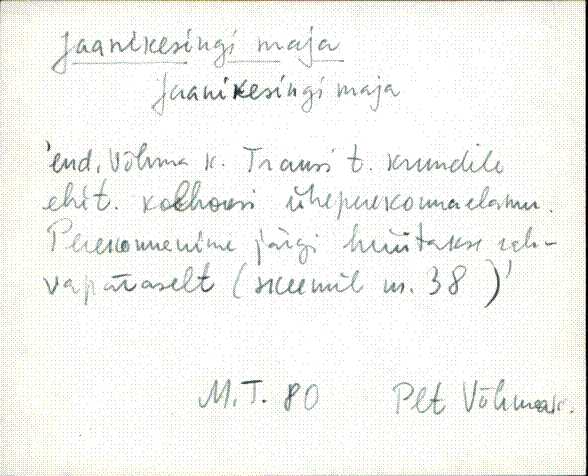 Jaanikesingi maja
Jaanikesingi maja
'end. Võhma k. Transi t. krundile
ehit. kolhoosi üheperekonnaelamu.
Perekonnanime järgi hüütakse rah-
vapäraselt (skeemil nr. 38)'
M.T. 80 Plt Võhma k.